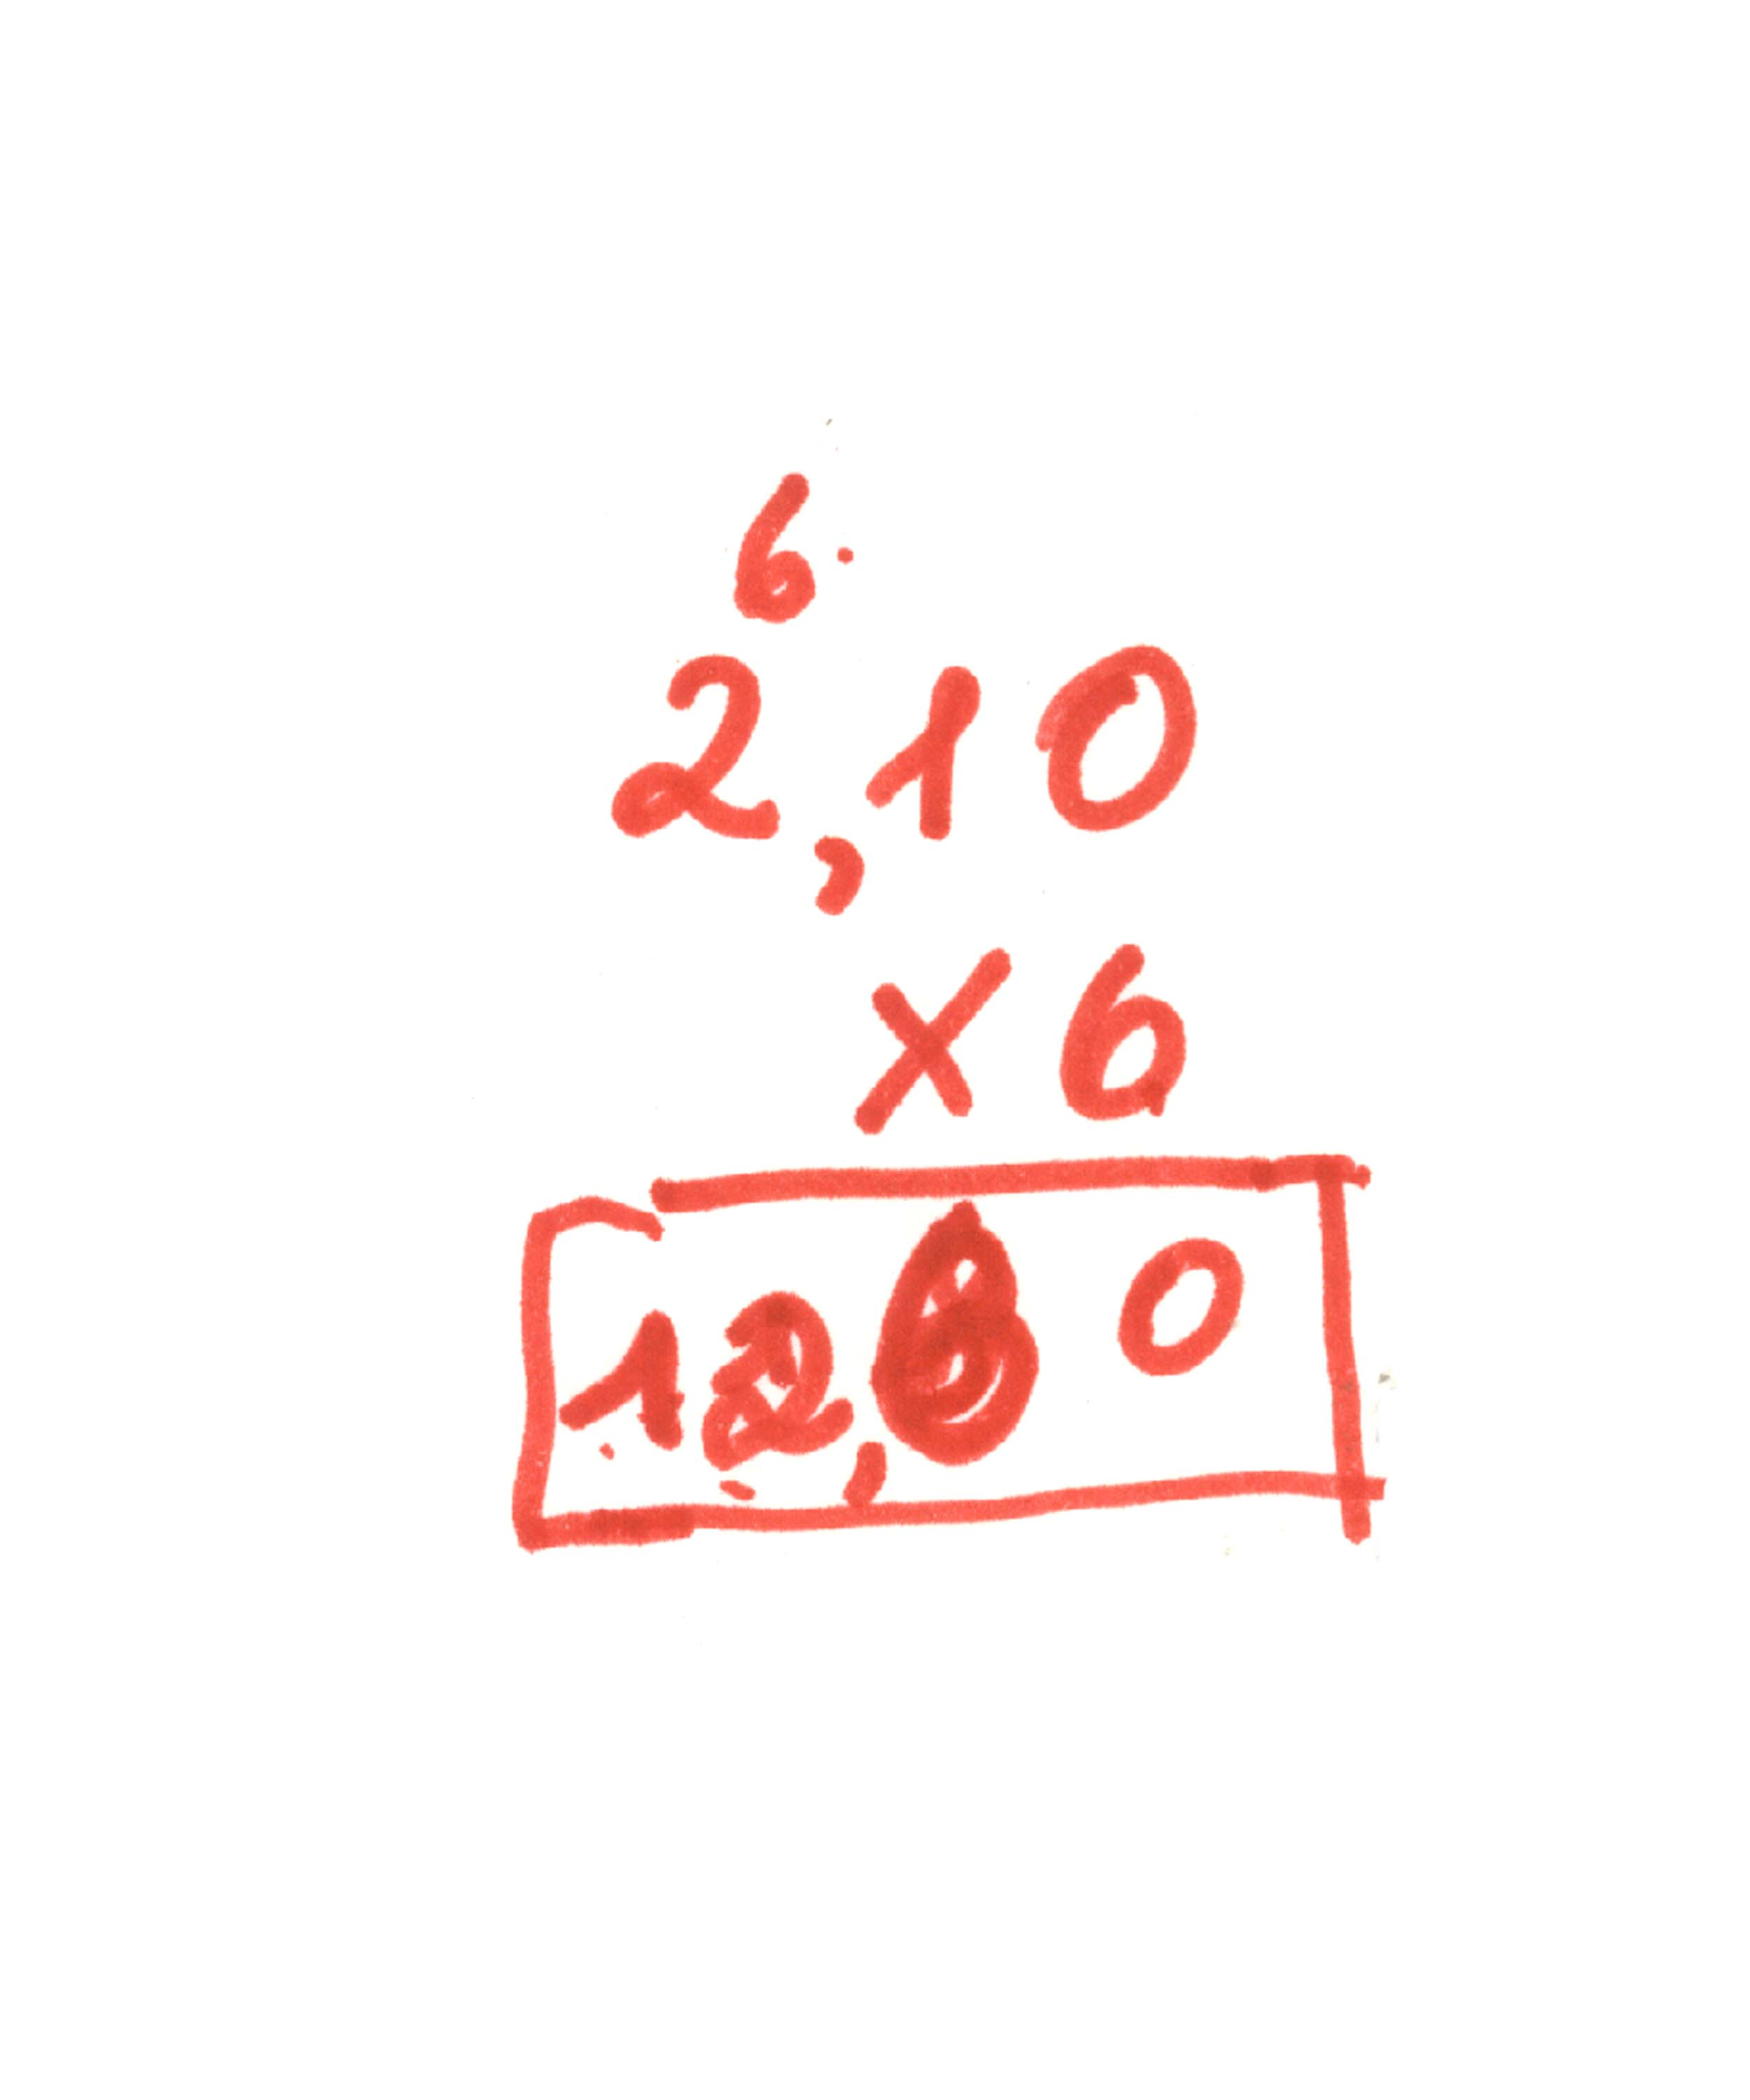 6.
2,10
x 6
12,60